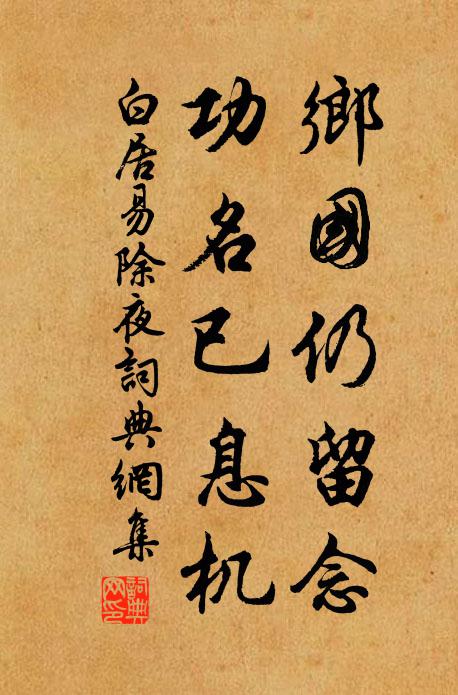 鄉國仍留念
功名已息机
白居易除夜詞典網集
詞典网印